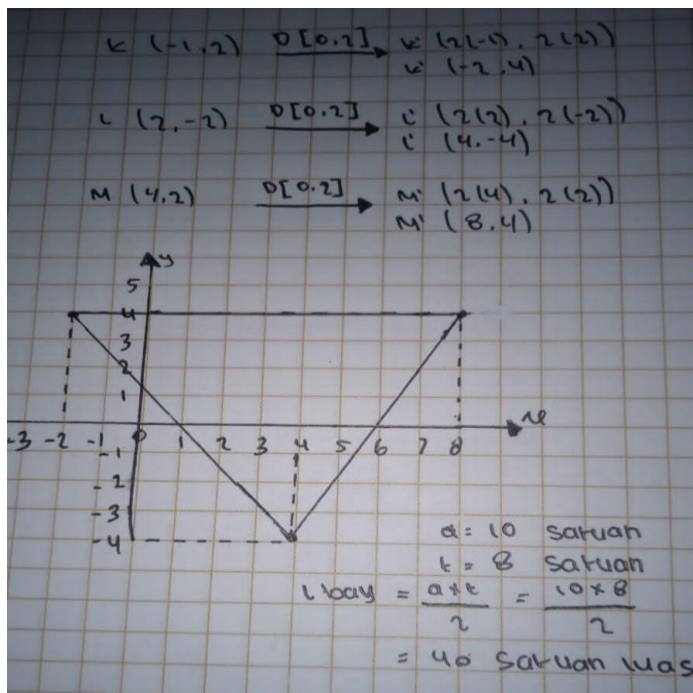 K (-1,2) D[0,2] K' (2(-1), 2(2))
K' (-2,4)
L (2,-2) D[0,2] L' (2(2), 2(-2))
L' (4,-4)
M (4,2) D[0,2] M' (2(4), 2(2))
M' (8,4)
y
5
4
3
2
1
x
-3 -2 -1 0 1 2 3 4 5 6 7 8
-1
-2
-3
-4
a = 10 satuan
t = 8 satuan
L bay = a x t / 2 = 10 x 8 / 2
= 40 satuan luas